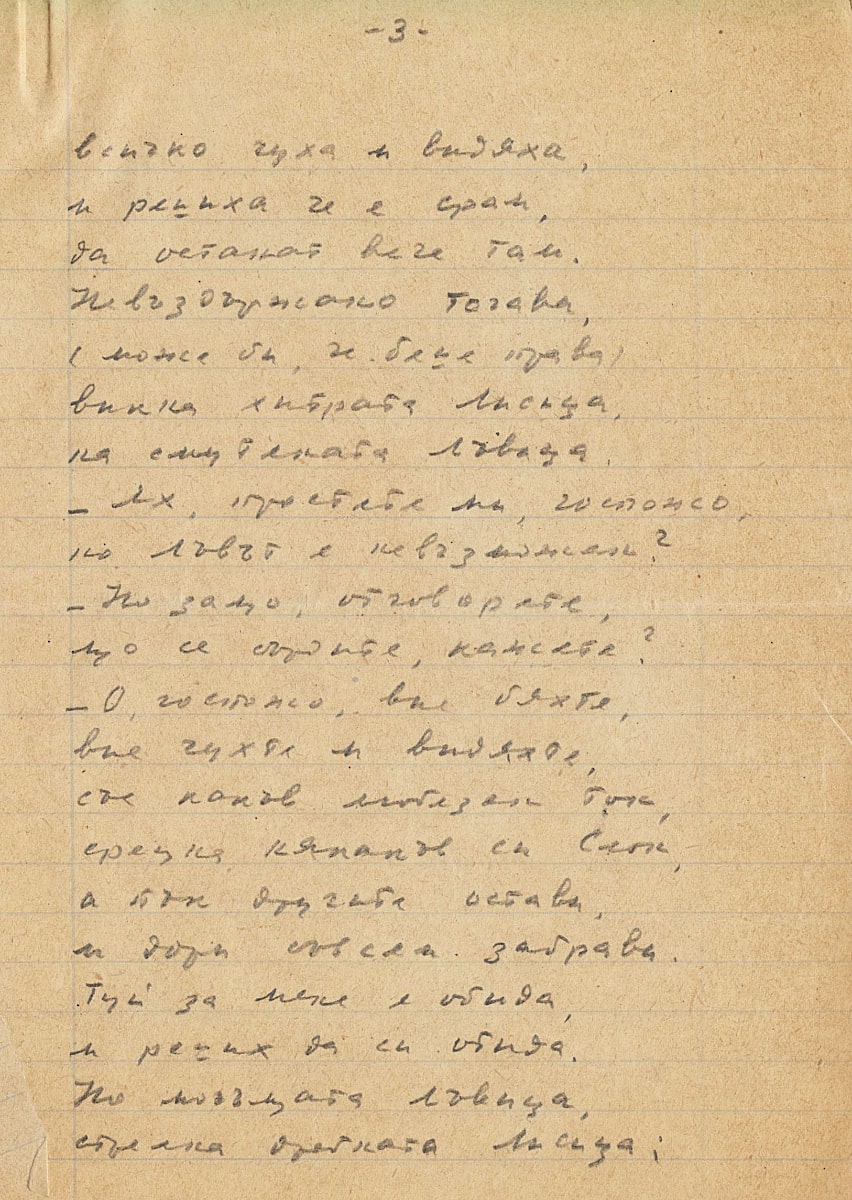 -3-
всичко чуха и видяха,
и решиха че е срам,
да останат вече там.
Невъздържано тогава,
(може би, че беше права)
викна хитрата Лисица,
на смутената Лъвица.
- Ах, простете ми, госпожо,
но Лъвът е невъзможен?
- Но защо, отговорете,
що се сърдите, кажете?
- О, госпожо, вие бяхте,
вие чухте и видяхте,
със какъв любезен тон,
срещна някакъв си Слон,
а пък другите остави,
и дори съвсем забрави.
Туй за мене е обида,
и реших да си отида.
Но могъщата Лъвица,
стрелна дребната Лисица: